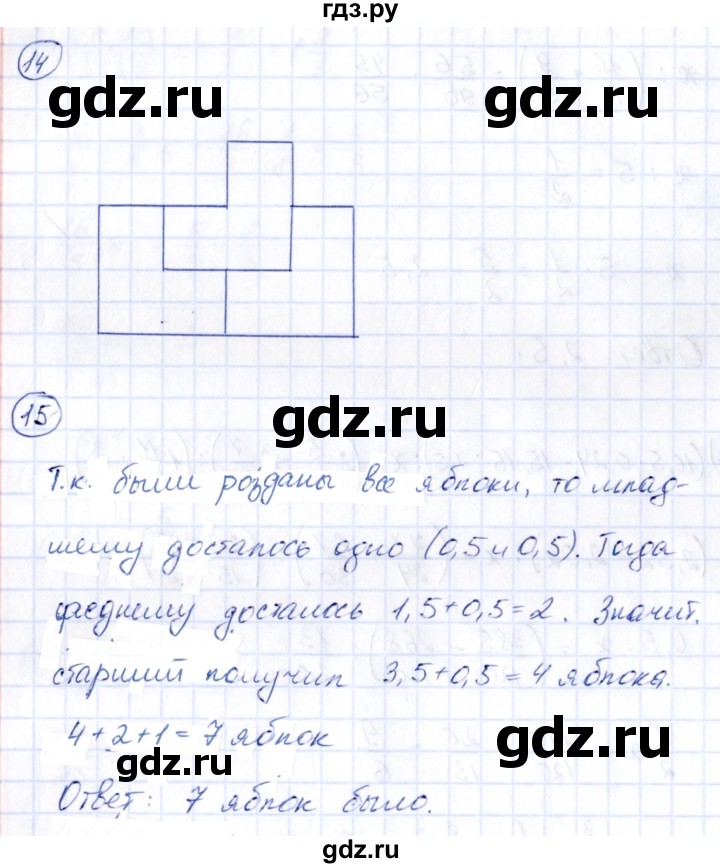 гдз.ру
14
gdz.ru gdz.ru
15
gdz.ru
Т.к. были розданы все яблоки, то млад-
шему досталось одно (0,5 и 0,5). Тогда
среднему досталось 1,5+0,5=2. Значит.
старший получил 3,5+0,5=4 яблока.
4+2+1=7 яблок
gdz.ru
Ответ: 7 яблок было.
gdz.ru